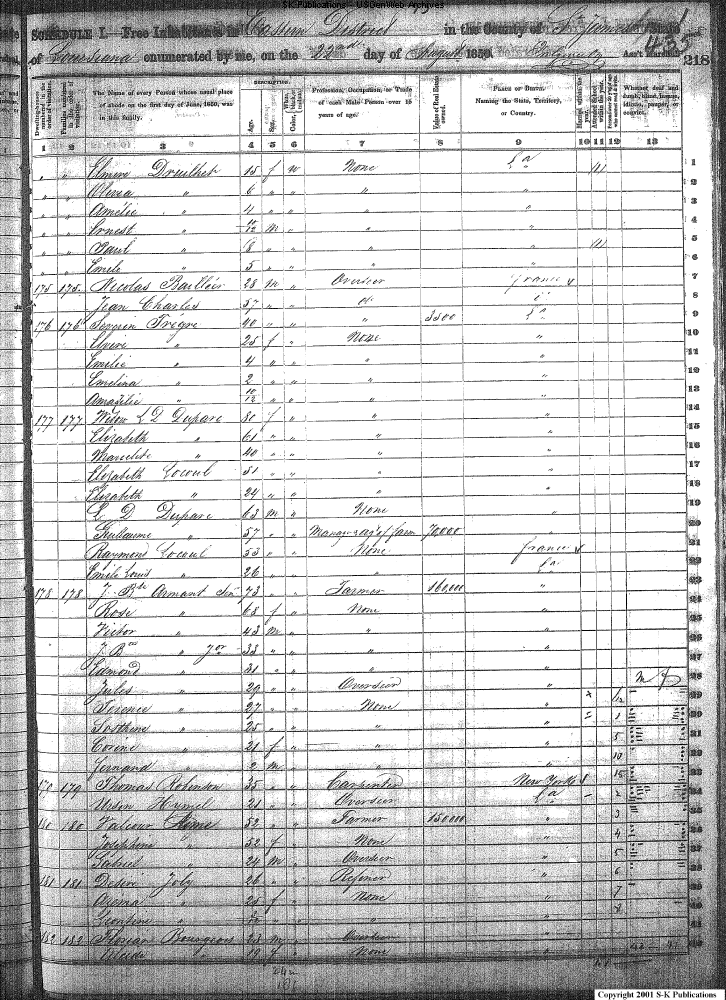 S-K Publications - USGenWeb Archives
SCHEDULE I.—Free Inhabitants in Eastern District in the County of St James State
of Louisiana enumerated by me, on the 22nd day of August 1850. Ass't Marshal
435
218
The Name of every Person whose usual place of abode on the first day of June, 1850, was in this family.
DESCRIPTION.
Age.
Sex.
Profession, Occupation, or Trade of each Male Person over 15 years of age.
Value of Real Estate owned.
PLACE OF BIRTH. Naming the State, Territory, or Country.
Married within the year.
Attended School within the year.
Whether deaf and dumb, blind, insane, idiotic, pauper, or convict.
1 2 3 4 5 6 7 8 9 10 11 12 13
" " Elmire Druilhet 15 f w None La 1
" " Olivia " 6 " " " " 2
" " Amélie " 4 " " " " 3
" " Ernest " 10/12 m " " " 4
" " Paul " 8 " " " " 5
" " Emile " 5 " " " " 6
175 175 Nicolas 28 m " Overseer France 7
Jean Charles 57 " " " 8
176 176 Trégre 40 " " " 3500 La 9
" 25 f " None " 10
Emilie " 4 " " " " 11
Emelina " 2 " " " " 12
" 10/12 " " " " 13
177 177 Widow L D Duparc 81 f " " " 14
Elizabeth " 61 " " " " 15
" 40 " " " " 16
Elizabeth Locoul 51 " " " " 17
Elizabeth " 24 " " " " 18
L D Duparc 63 m " None " 19
Guillaume " 57 " " Manager ag't farm 70,000 " 20
Raymond Locoul 55 " " None France 21
Emile Louis " 26 " " " La 22
178 178 J. Bte Armant Sen 73 " " Farmer 160,000 " 23
Rose " 68 f " None " 24
Victor " 43 m " " " 25
J. B " Jor 33 " " " " 26
Edmond " 31 " " " " 27
Jules " 29 " " Overseer " 28
Terence " 27 " " None " 29
Sosthene " 25 " " " " 30
Corine " 21 f " " " 31
Fernand " 2 m " " " 32
179 179 Thomas Robinson 35 " " Carpenter New York 33
Hymel 21 " " Overseer La 34
180 180 Valcour Aime 52 " " Farmer 150000 " 35
Josephine " 52 f " None " 36
Gabriel " 24 m " Overseer " 37
181 181 Desiré Joly 26 " " Refiner " 38
" 25 f " None " 39
" " " " 40
182 182 Florian Bourgeois 23 m " Overseer " 41
" 19 f " None " 42
Copyright 2001 S-K Publications